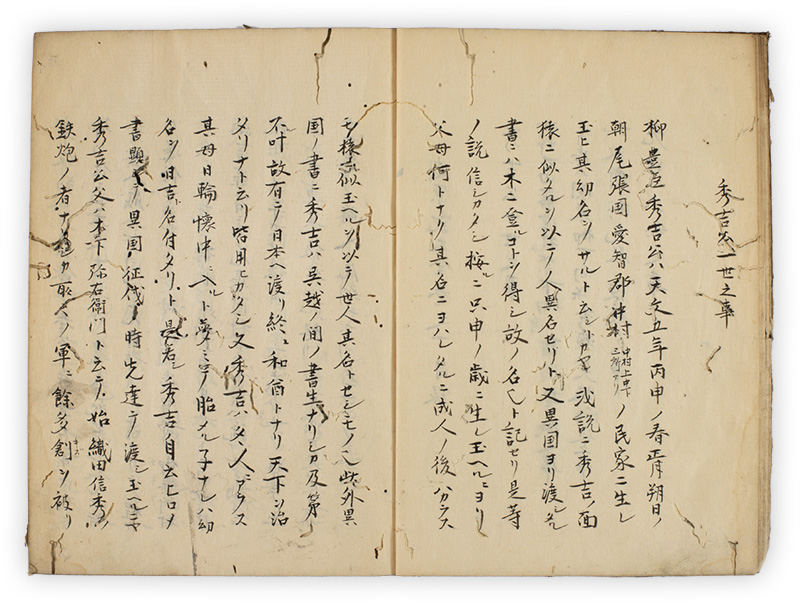 秀吉公一世之事
柳豊臣秀吉公ハ天文五年丙申ノ春正月朔日ノ
朝尾張国愛智郡中村中村上中下三ヶ所アリノ民家ニ生レ
玉ヒ其幼名ヲサルト云シトカヤ或説ニ秀吉ノ面
猿ニ似タルヲ以テ人異名セリト又異国ヨリ渡レル
書ニハ木ニ登ルコトヲ得シ故ノ名也ト記セリ是等
ノ説信シカタシ按ルニ只申ノ歳ニ生レ玉ヘルニヨリ
父母何トナク其名ニヨハレタルニ成人ノ後ハカラス
モ猿ニ似玉ヘルヲ以テ世人其名トセシモノ也此外異
国ノ書ニ秀吉ハ呉越ノ間ノ書生ナリシカ及第
不叶故有テ日本ヘ渡リ終ニ和酋トナリ天下ヲ治
タリナト云リ皆用ヒカタシ又秀吉ハタヽ人ニアラス
其母日輪懐中ニ入ルト夢ミテ胎メル子ナレハ幼
名ヲ日吉ト名付タリト是若シ秀吉ノ自云ヒロメ
書顕シテ異国征伐ノ時先達テ渡シ玉ヘルニヤ
秀吉公父ハ木下弥右衛門ト云テ始織田信秀ノ
鉄炮ノ者ナリ
軍ニ餘多創ヲ被リ